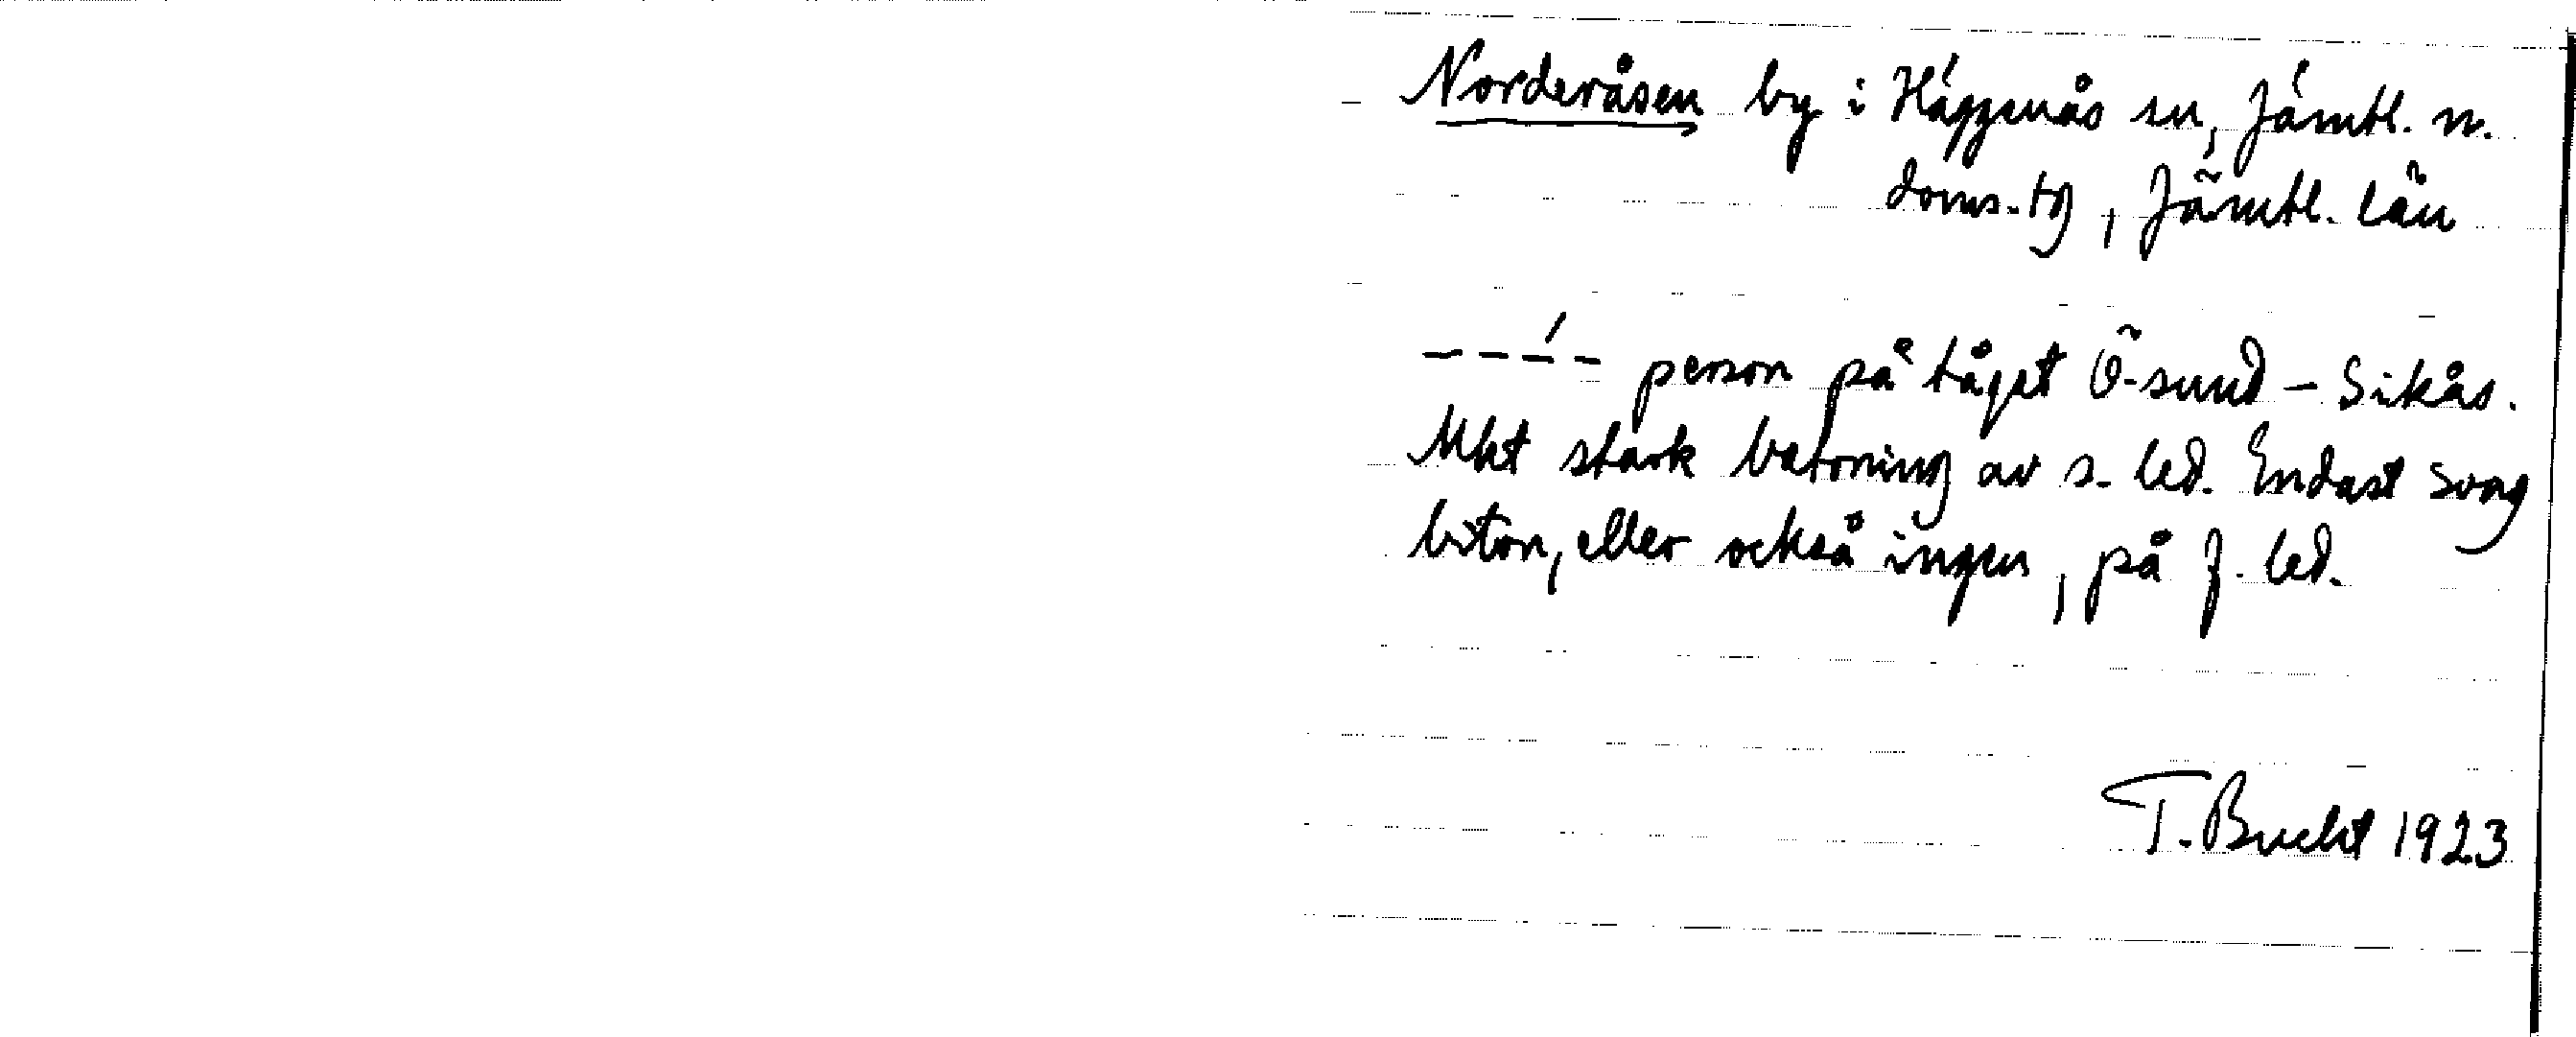 Norderåsen by i Häggenås sn, Jämtl. n.
doms.tg, Jämtl. län
----́- person på tåget Ö-sund - Sikås.
Mkt stark betoning av s. led. Endast svag
biton, eller också ingen, på f. led.
T. Bucht 1923